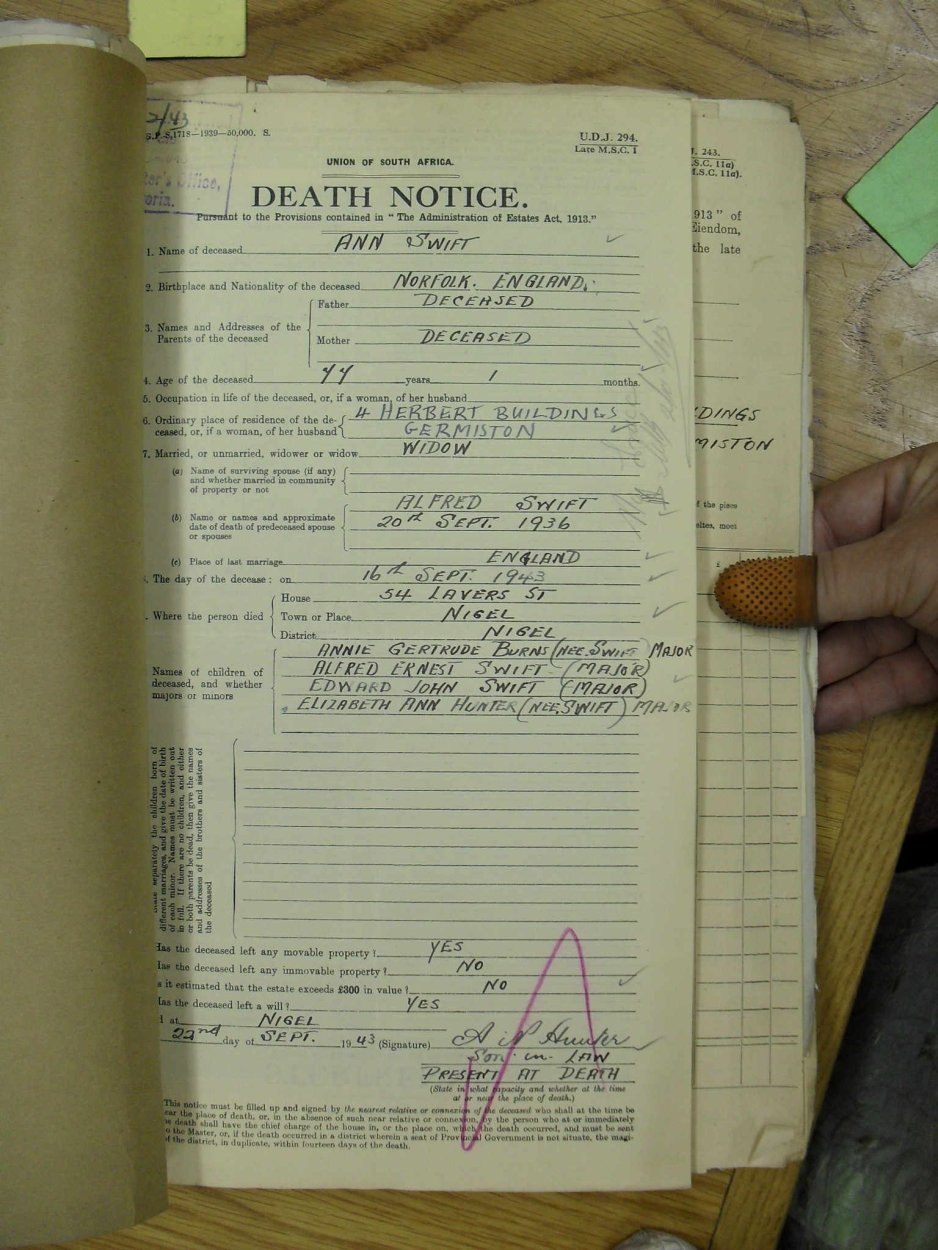 2/43
G.P.-S.1718—1939—50,000. S.
U.D.J. 294.
Late M.S.C. 1
ter's Office,
oria.
UNION OF SOUTH AFRICA.
DEATH NOTICE.
Pursuant to the Provisions contained in "The Administration of Estates Act, 1913."
1. Name of deceased ANN SWIFT
2. Birthplace and Nationality of the deceased NORFOLK. ENGLAND.
3. Names and Addresses of the Parents of the deceased
Father DECEASED
Mother DECEASED
4. Age of the deceased 77 years 1 months.
5. Occupation in life of the deceased, or, if a woman, of her husband
6. Ordinary place of residence of the de- 4 HERBERT BUILDINGS
ceased, or, if a woman, of her husband GERMISTON
7. Married, or unmarried, widower or widow WIDOW
(a) Name of surviving spouse (if any)
and whether married in community
of property or not
ALFRED SWIFT
(b) Name or names and approximate 20th SEPT. 1936
date of death of predeceased spouse
or spouses
(c) Place of last marriage ENGLAND
. The day of the decease: on 16th SEPT. 1943
House 54 LAVERS ST
. Where the person died Town or Place NIGEL
District NIGEL
Names of children of
deceased, and whether
majors or minors
ANNIE GERTRUDE BURNS (NEE. SWIFT) MAJOR
ALFRED ERNEST SWIFT (MAJOR)
EDWARD JOHN SWIFT (MAJOR)
ELIZABETH ANN HUNTER (NEE. SWIFT) MAJOR
separately the children born of
different marriages, and give the date of birth
of each minor. Names must be written out
in full. If there are no children, and either
or both parents be dead, then give the names
and addresses of the brothers and sisters of
the deceased
Has the deceased left any movable property? YES
Has the deceased left any immovable property? NO
s it estimated that the estate exceeds £300 in value? NO
Has the deceased left a will? YES
d at NIGEL
22nd day of SEPT. 1943 (Signature) Hunter
Son in LAW
PRESENT AT DEATH
(State in what capacity and whether at the time
at or near the place of death.)
This notice must be filled up and signed by the nearest relative or connexion of the deceased who shall at the time be
ear the place of death, or, in the absence of such near relative or connexion, by the person who at or immediately
e death shall have the chief charge of the house in, or the place on, which the death occurred, and must be sent
o the Master, or, if the death occurred in a district wherein a seat of Provincial Government is not situate, the magi-
of the district, in duplicate, within fourteen days of the death.
J. 243.
.S.C. 11a)
M.S.C. 11a).
913" of
Eiendom,
the late
DINGS
MISTON
f the place
eltes, moet